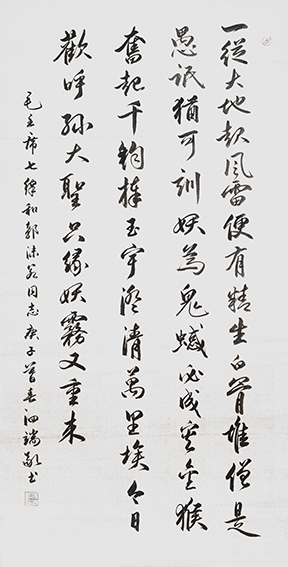 一從大地起風雷便有精生白骨堆僧是
愚氓猶可訓妖為鬼蜮必成災金猴
奮起千鈞棒玉宇澄清萬里埃今日
歡呼孫大聖只緣妖霧又重來
毛主席七律和郭沫若同志庚子暮春泗瑞敬書